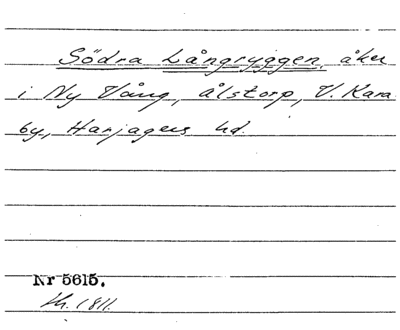 Södra Långryggen, åker
i Ny Vång, Ålstorp, V. Kara
by, Harjagers hd.
Nr 5615.
1811.